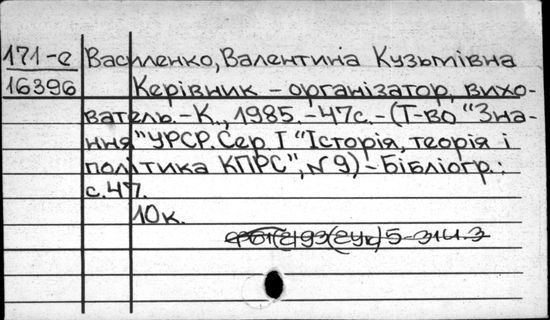 171-е Василенко, Валентина Кузьмівна
16396 Керівник - організатор, вихо-
ватель.-К., 1985.-47с.-(Т-во "Зна-
ння" УРСР. Сер I "Історія, теорія і
політика КПРС"; №9)-Бібліогр.:
с.47.
10к.